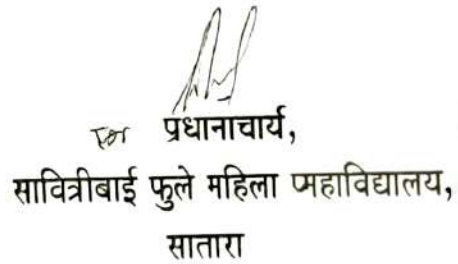 for प्रधानाचार्य,
सावित्रीबाई फुले महिला प्महाविद्यालय,
सातारा